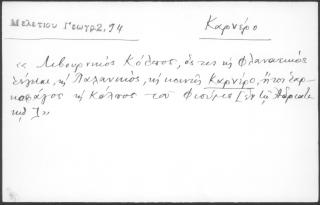 Μελετίου Γεωγρ, 94
Καρνέρο
« Λιβουρνικὸς Κόλπος, ὅς τις κ Φλανατικὸς
λέγεται, κ Παλανικός, κ κοινῶς Καρνέρο, ἤτοι Σαρ-
κοφάγος κ Κόλπος τοῦ Φιούμε [ἐν τῇ Ἀδριατι-
κῇ] »